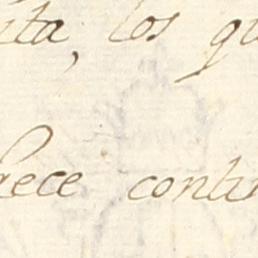 ita, los qu
rece contin